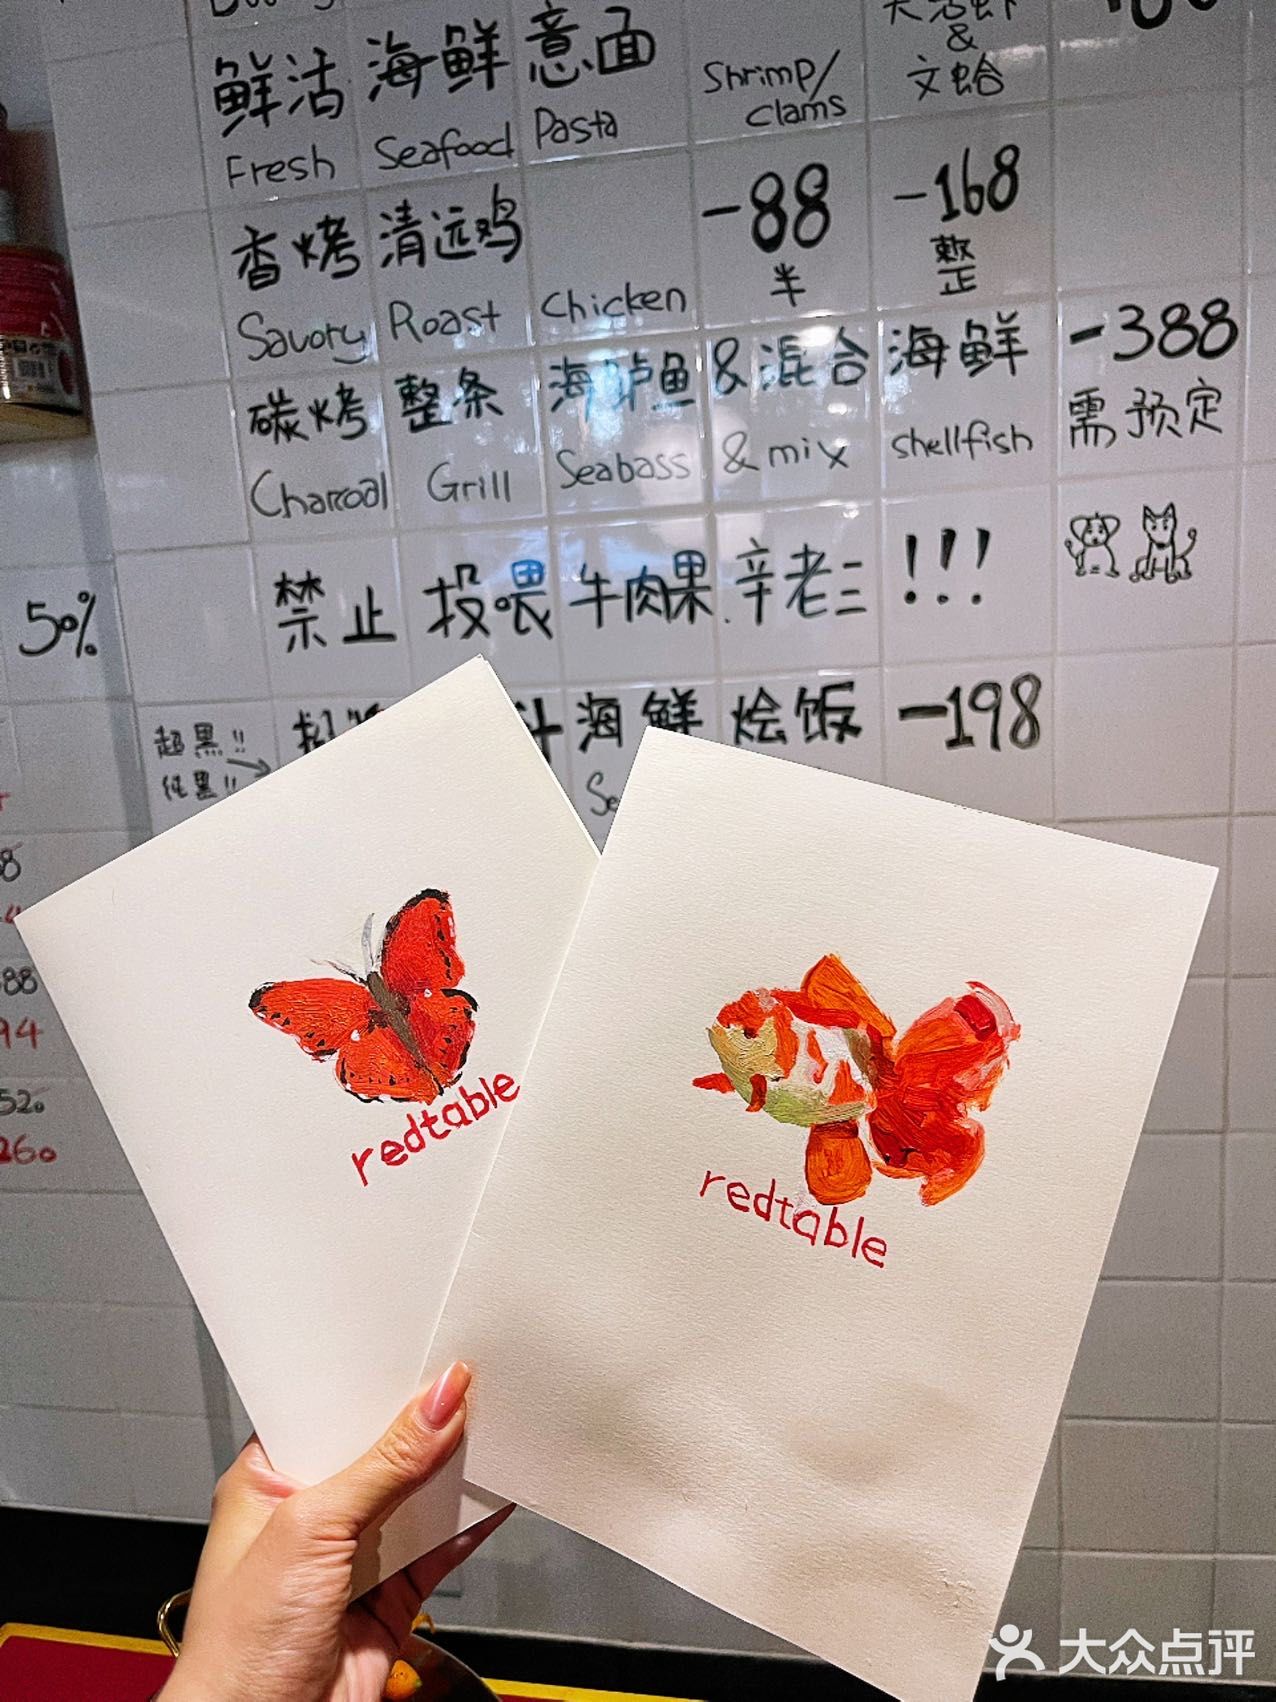 鲜活 海鲜 意面 Shrimp/ clams & 文蛤
Fresh Seafood Pasta
香烤 清远鸡 -88 -168
半 整
Savory Roast Chicken
碳烤 整条 海鲈鱼 & 混合 海鲜 -388
Charcoal Grill Seabass & mix shellfish 需预定
禁止 投喂 牛肉果.辛老三 !!!
50%
超黑!!
纯黑!!
汁 海鲜 烩饭 -198
88
94
520
260
redtable
redtable
大众点评